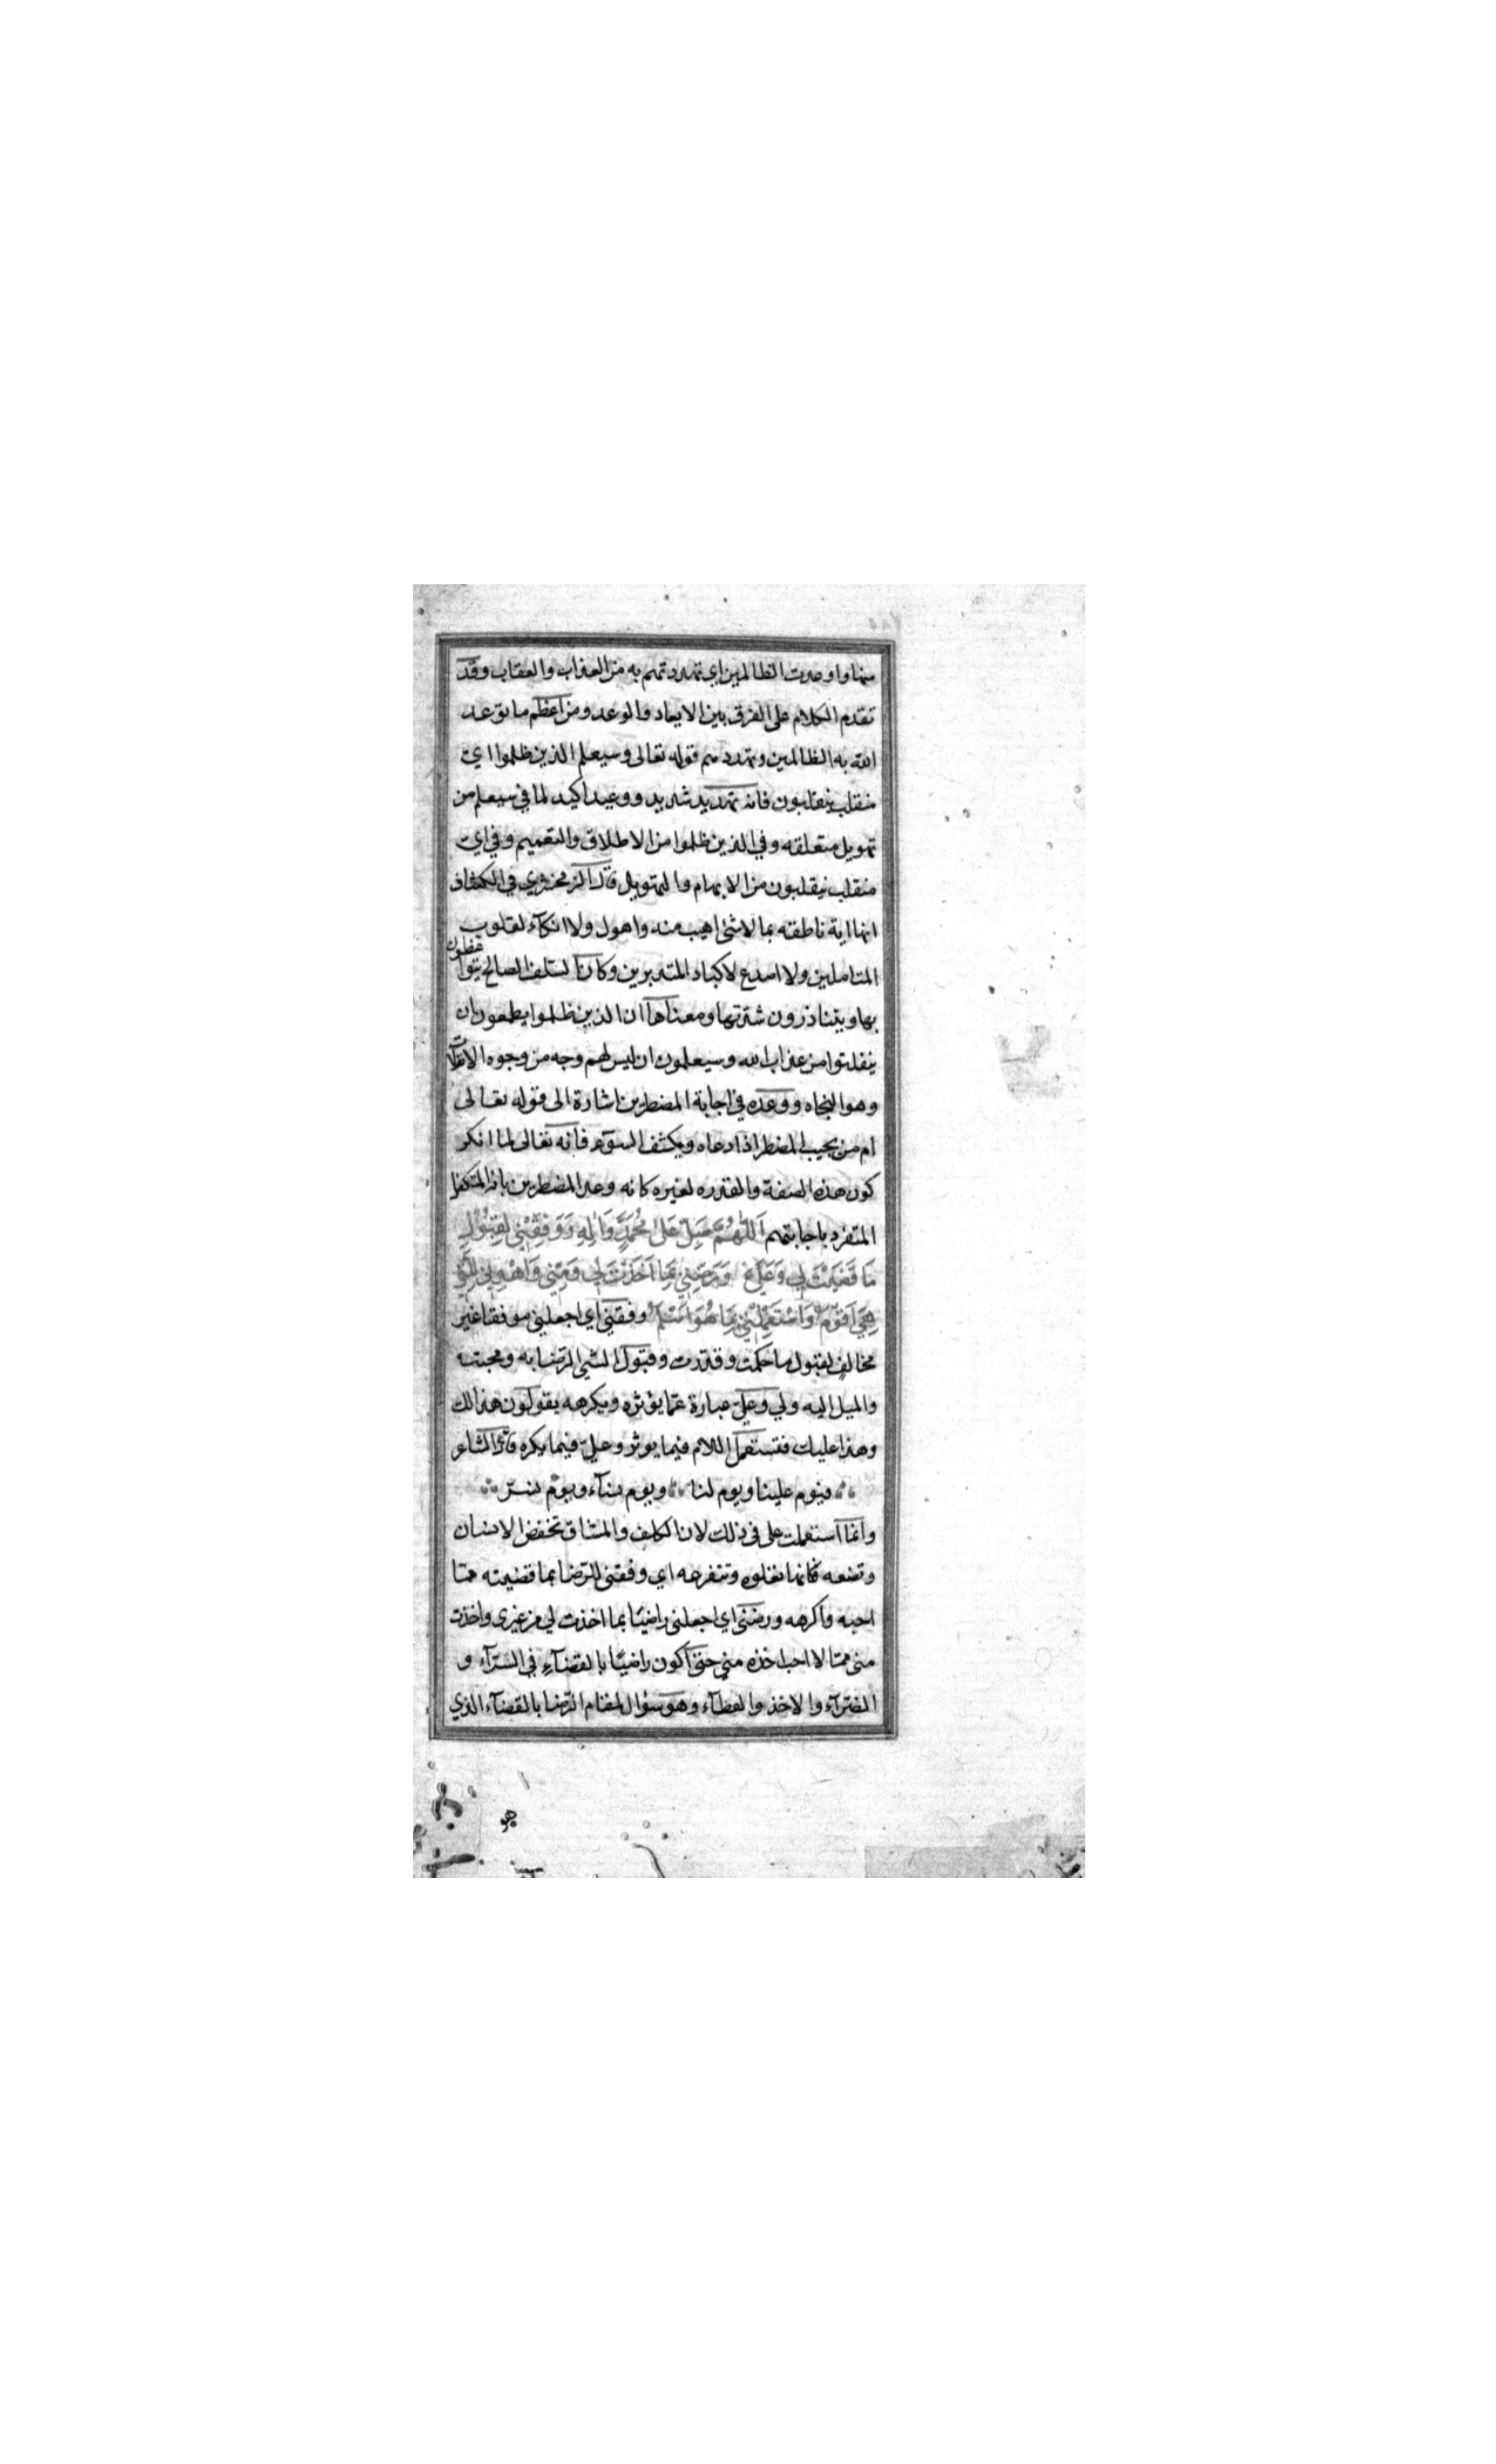 منها واوعدت الظالمين اي تهددتهم به من العذاب والعقاب وقد
تقدم الكلام على الفرق بين الايعاد والوعد ومن اعظم ما توعد
الله به الظالمين وتهددهم قوله تعالى وسيعلم الذين ظلموا اي
منقلب ينقلبون فانه تهديد شديد ووعيد اكيد لما في سيعلم من
تهويل متعلقه وفي الذين ظلموا من الاطلاق والتعميم وفي اي
منقلب ينقلبون من الابهام والتهويل قال الزمخشري في الكشاف
انها اية ناطقه بما لا شئ اهيب منه واهول ولا انكآء لقلوب
المتاملين ولا اصدع لاكباد المتدبرين وكان السلف الصالح يتواعظون
بها ويتناذرون شدتها ومعناها ان الذين ظلموا يطمعون ان
ينفلتوا من عذاب الله وسيعلمون ان ليس لهم وجه من وجوه الانفلات
وهو النجاه ووعده في اجابة المضطرين اشارة الى قوله تعالى
ام من يجيب المضطر اذا دعاه ويكشف السوٓء فانه تعالى لما انكر
كون هذه الصفة والقدره لغيره كانه وعد المضطرين بانه المتكفل
المتفرد باجابتهم اَللّٰهُمَّ صَلِّ عَلىٰ مُحَمَّدٍ وَاٰلِهِ وَوَفِّقْنِي لِقَبُولِ
مَا قَضَيْتَ لِي وَعَلَيَّ وَرَضِّنِي بِمَا اَخَذْتَ لِي وَمِنِّي وَاهْدِنِي لِلَّتِي
هِيَ اَقْوَمُ وَاسْتَعْمِلْنِي بِمَا هُوَ اَسْلَمُ وفقني اي اجعلني موفقا غير
مخالف لقبول ما حكمت وقدرت وقبول الشي الرضا به ومحبته
والميل اليه ولي وعليّ عبارة عمّا يؤثره ويكرهه يقولون هذا لك
وهذا عليك فتستعمل اللام فيما يوثر وعلى فيما يكره قال الشاعر
فيوم علينا ويوم لنا ويوم نسآء ويوم نسرّ
وانما استعملت على في ذلك لان الكلف والمشاق تخفض الانسان
وتضعه فكانها تعلوه وتتفرعه اي وفقني للرّضا بما قضيته ممّا
احبه واكرهه ورضّني اي اجعلني راضيًا بما اخذت لي من غيري واخذت
مني ممّا لا احب اخذه مني حتى اكون راضيًا بالقضآء في السّرّآء و
الضّرّآء والاخذ والعطآء وهو سؤال لمقام الرّضا بالقضآء الذي
هو